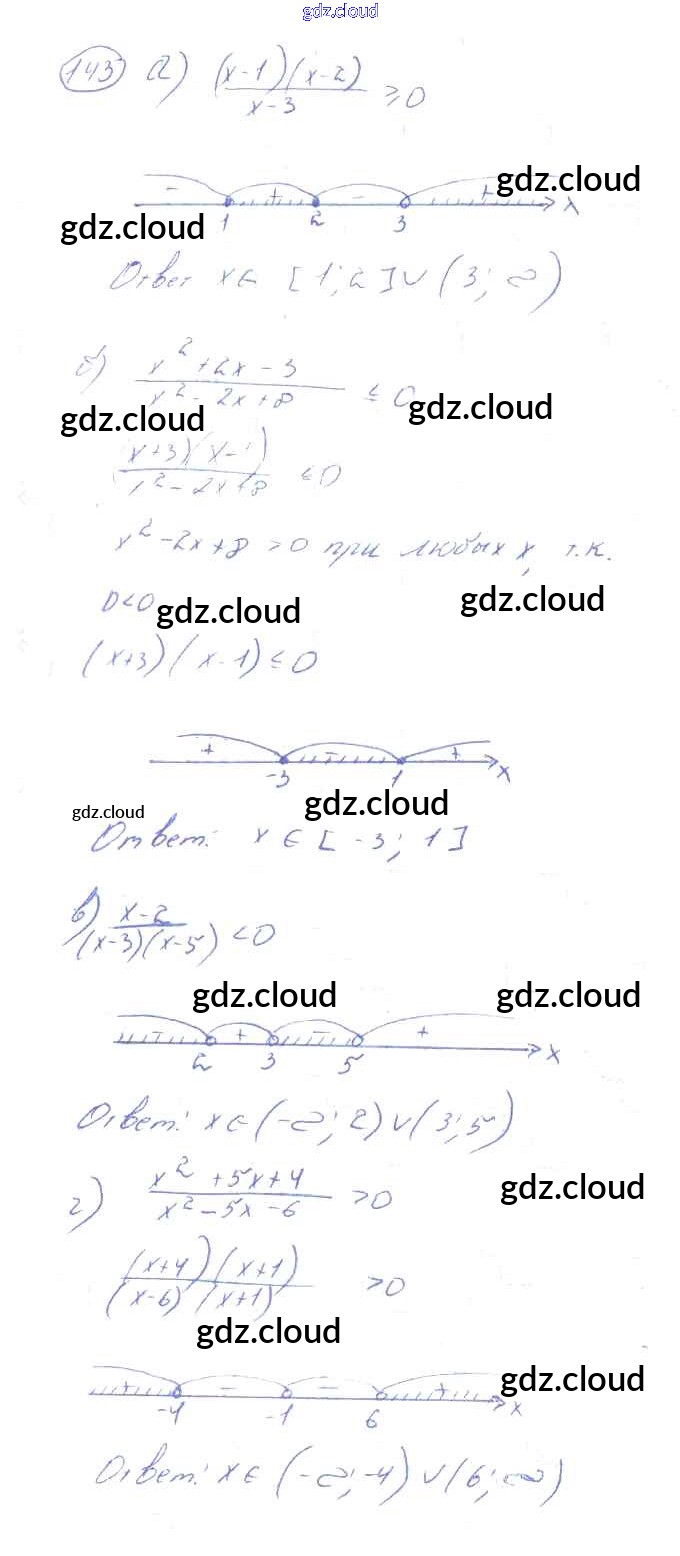 gdz.cloud
143 а) (x-1)(x-2)/x-3 ≥0
gdz.cloud
- + - + x
gdz.cloud
1 2 3
Ответ x∈ [1;2]∪(3;∞)
б) x²+2x-3/x²-2x+8 ≤ 0
gdz.cloud
gdz.cloud
(x+3)(x-1)/x²-2x+8 ≤0
x²-2x+8 >0 при любых x, т.к.
D<0
gdz.cloud
gdz.cloud
(x+3)(x-1)≤0
+ - +
-3 1 x
gdz.cloud
gdz.cloud
Ответ: x∈[-3; 1]
в) x-2/(x-3)(x-5) <0
gdz.cloud
gdz.cloud
- + - +
2 3 5 x
Ответ: x∈(-∞; 2)∪(3;5)
г) x²+5x+4/x²-5x-6 >0
gdz.cloud
(x+4)(x+1)/(x-6)(x+1) >0
gdz.cloud
gdz.cloud
+ - - +
-4 -1 6 x
Ответ: x∈(-∞;-4)∪(6;∞)